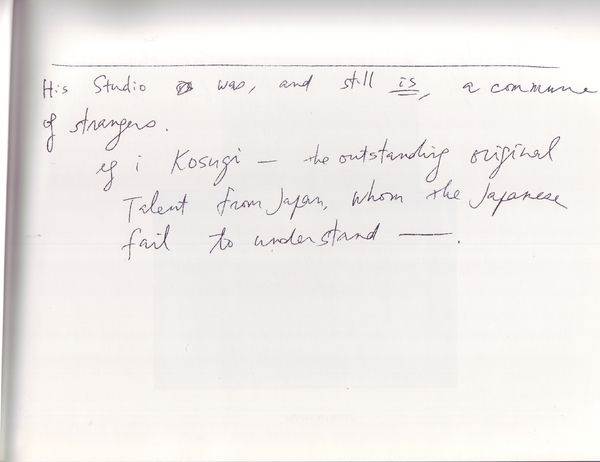 His Studio was, and still is, a commune
of strangers.
eg i Kosugi — the outstanding original
Talent from Japan, whom the Japanese
fail to understand —.